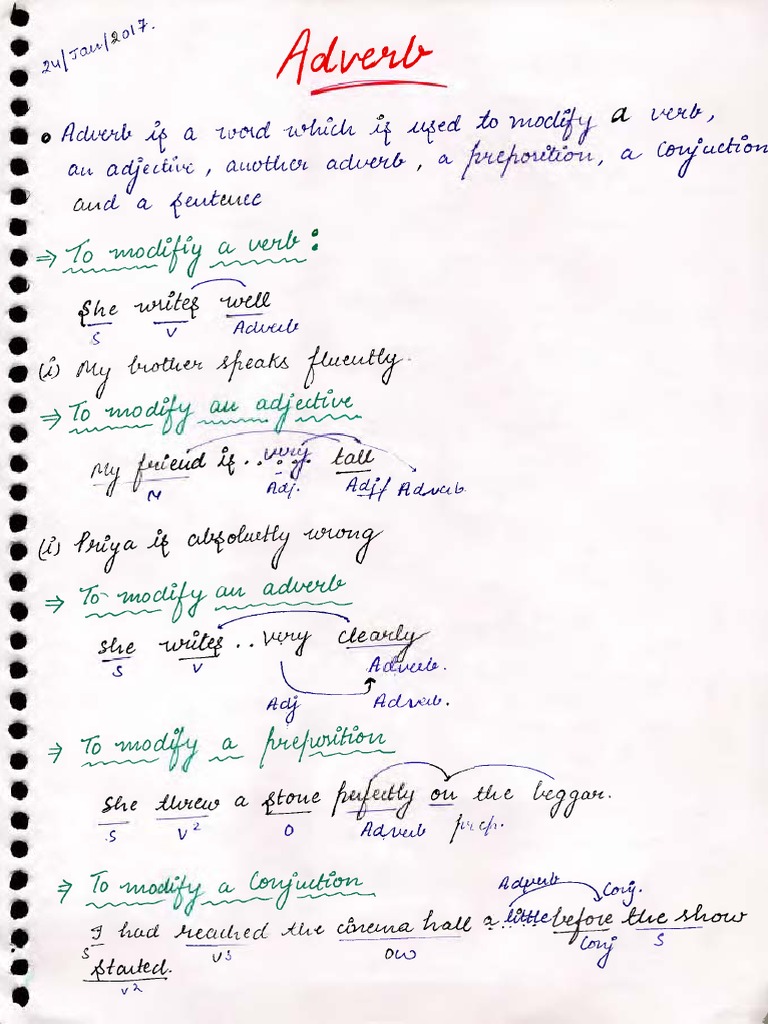 24/Jan/2017.
Adverb
• Adverb is a word which is used to modify a verb,
an adjective, another adverb, a preposition, a Conjuction
and a sentence
⇒ To modifiy a verb:
She writes well
S V Adverb
(i) My brother speaks fluently.
⇒ To modify an adjective
My friend is .. very tall
N Adj. Adj/ Adverb
(i) Priya is absoluetly wrong
⇒ To modify an adverb
She writes .. very clearly
S V Adverb.
Adj Adverb.
⇒ To modify a preposition
She threw a stone perfectly on the beggar.
S V2 O Adverb prep.
⇒ To modify a Conjuction
Adverb Conj.
I had reached the cinema hall a little before the show
S V3 OW Conj S
started.
V2